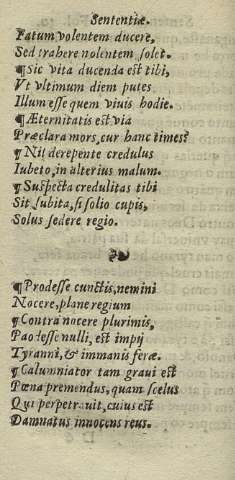 Sententiæ.
Fatum volentem ducere,
Sed trahere nolentem solet.
¶ Sic vita ducenda est tibi,
Vt vltimum diem putes
Illum esse quem viuis hodie.
¶ Æternitatis est via
Præclara mors, cur hanc times?
¶ Nil derepente credulus
Iubeto, in alterius malum.
¶ Suspecta credulitas tibi
Sit subita, si solio cupis,
Solus sedere regio.
¶ Prodesse cunctis, nemini
Nocere, plane regium
¶ Contra nocere plurimis,
Prodesse nulli, est impij
Tyranni, & immanis feræ.
¶ Calumniator tam graui est
Pœna premendus, quam scelus
Qui perpetrauit, cuius est
Damnatus innocens reus.